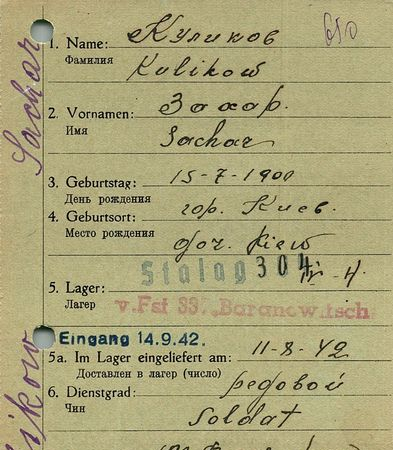 650
1. Name: Куликов
Фамилия
Kulikow
2. Vornamen: Захар.
Имя
Sachar
3. Geburtstag: 15-7-1900
День рождения
4. Geburtsort: гор. Киев.
Место рождения
Kiew
Stalag 304
5. Lager:
Лагер
v. Fst 337 Baranowitsch
Eingang 14.9.42.
5a. Im Lager eingeliefert am: 11-8-42
Доставлен в лагер (число)
6. Dienstgrad: редовой
Чин
Soldat
Sachar